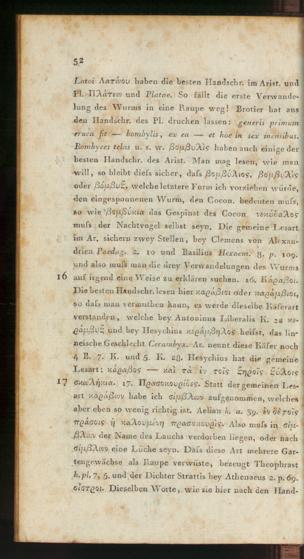 52
Latoi Λατώου haben die besten Handschr. im Arist. und
Pl. Πλάτεω und Plateae. So fällt die erste Verwande-
lung des Wurms in eine Raupe weg! Brotier hat aus
den Handschr. des Pl. drucken lassen: generis primum
eruca fit — bombylis, ex ea — et hoc in sex mensibus.
Bombyces telas u. s. w. βομβυλὶς haben auch einige der
besten Handschr. des Arist. Man mag lesen, wie man
will, so bleibt diess sicher, dass βομβύλιος, βομβυλὶς
oder βόμβυξ, welche letztere Form ich vorziehen würde,
den eingesponnenen Wurm, den Cocon, bedeuten muss,
so wie βομβύκια das Gespinst des Cocon. νεκύδαλος
muss der Nachtvogel selbst seyn. Die gemeine Lesart
im Ar. sichern zwey Stellen, bey Clemens von Alexan-
drien Paedag. 2. 10 und Basilius Hexaem. 8, p. 109.
und also muss man die drey Verwandelungen des Wurms
16 auf irgend eine Weise zu erklären suchen. 16. Κάραβοι.
Die besten Handschr. lesen hier καράβιοι oder καράμβιοι,
so dass man vermuthen kann, es werde dieselbe Käferart
verstanden, welche bey Antoninus Liberalis K. 22 κε-
ράμβυξ und bey Hesychius κεράμβηλος heisst, das lin-
neische Geschlecht Cerambyx. Ar. nennt diese Käfer noch
4 B. 7. K. und 5. K. 28. Hesychius hat die gemeine
Lesart: κάραβος — καὶ τὰ ἐν τοῖς ξηροῖς ξύλοις
17 σκωλήκια. 17. Πρασοκουρίδες. Statt der gemeinen Les-
art καράβων habe ich σίμβλων aufgenommen, welches
aber eben so wenig richtig ist. Aelian h. a. 39. ἐν δὲ τοῖς
πράσοις ἡ καλουμένη πρασοκουρὶς. Also muss in σίμ-
βλων der Name des Lauchs verdorben liegen, oder nach
σίμβλων eine Lücke seyn. Dass diese Art mehrere Gar-
tengewächse als Raupe verwüste, bezeugt Theophrast
h. pl. 7, 5. und der Dichter Strattis bey Athenaeus 2. p. 69.
οἶστροι. Dieselben Worte, wie sie hier nach den Hand-